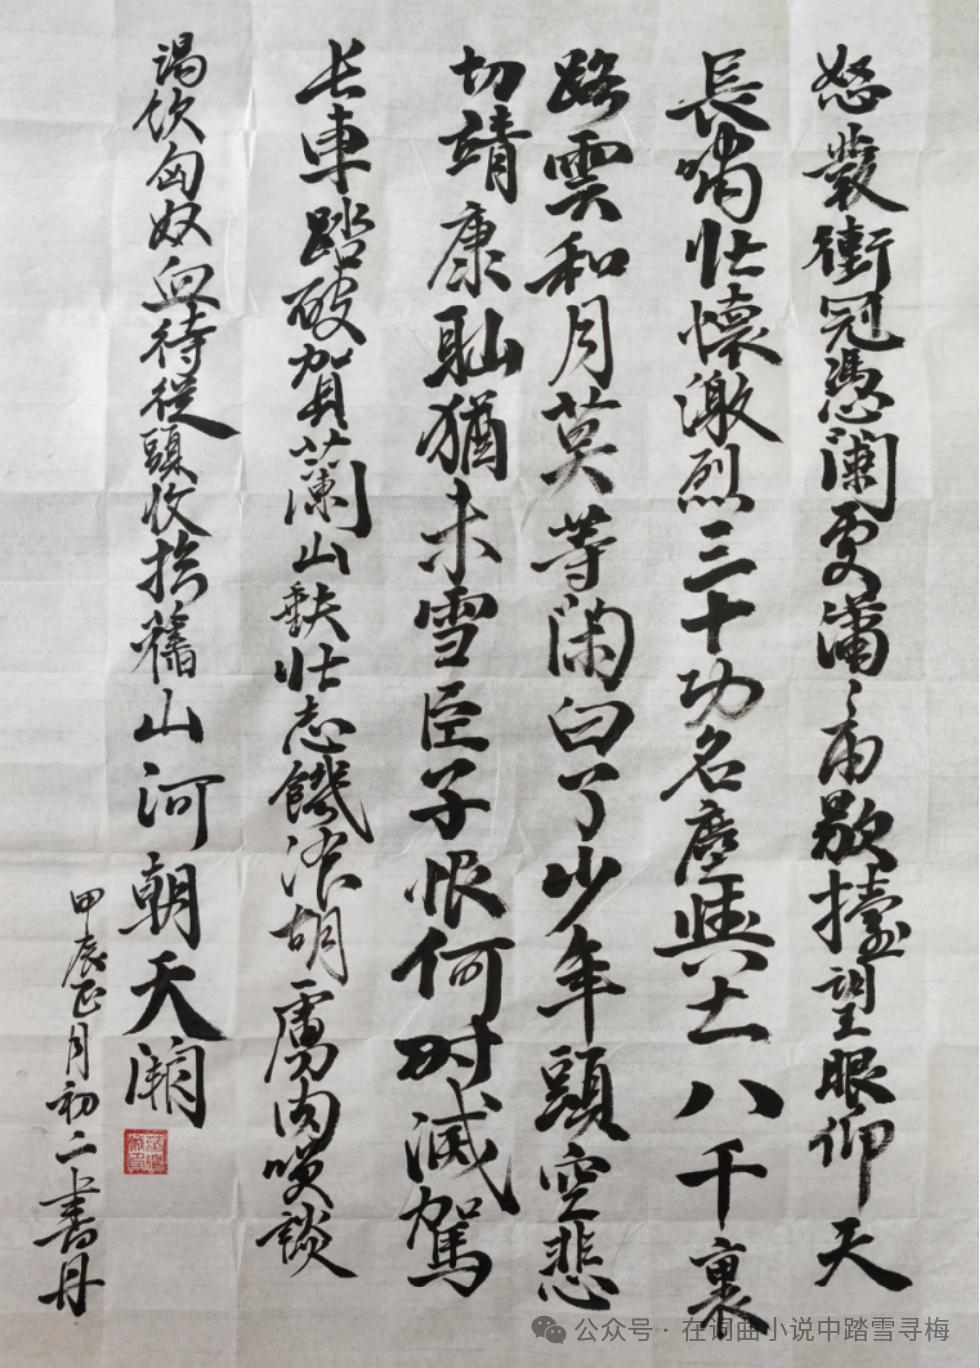 怒發衝冠憑闌處瀟〻雨歇擡望眼仰天
長嘯壯懷激烈三十功名塵與土八千裏
路雲和月莫等閑白了少年頭空悲
切靖康恥猶未雪臣子恨何时滅駕
长車踏破賀蘭山缺壯志饑湌胡虜肉笑談
渴饮匈奴血待從頭收拾舊山河朝天闕
甲辰正月初二書丹
公众号·在词曲小说中踏雪寻梅